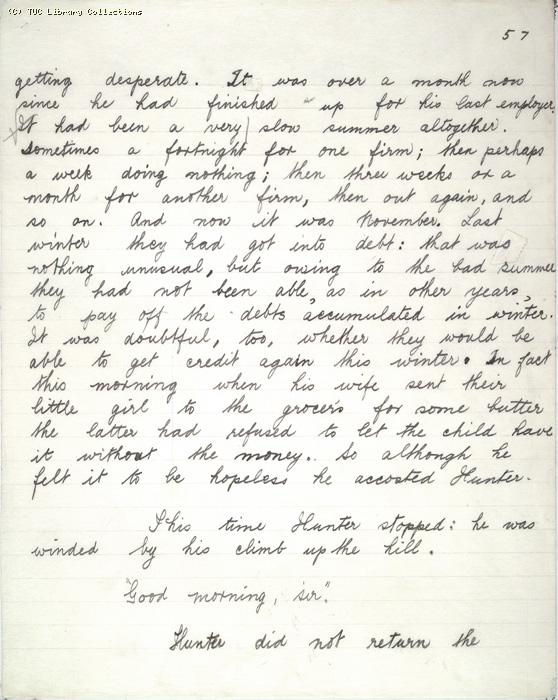 (C) TUC Library Collections
57
getting desperate. It was over a month now
since he had finished up for his last employer.
It had been a very slow summer altogether.
Sometimes a fortnight for one firm; then perhaps
a week doing nothing; then three weeks or a
month for another firm, then out again, and
so on. And now it was November. Last
winter they had got into debt: that was
nothing unusual, but owing to the bad summer
they had not been able, as in other years,
to pay off the debts accumulated in winter.
It was doubtful, too, whether they would be
able to get credit again this winter. In fact
this morning when his wife sent their
little girl to the grocer's for some butter
the latter had refused to let the child have
it without the money. So although he
felt it to be hopeless he accosted Hunter.
This time Hunter stopped: he was
winded by his climb up the hill.
"Good morning, sir".
Hunter did not return the